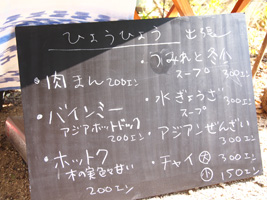 ひょうひょう 出張
・肉まん 200エン
・バインミー
アジアホットドッグ
・ホットク
木の実 甘い
200エン
・つみれと冬
スープ 300エン
・水ぎょうざ
スープ 300エン
・アジアンぜんざい
300エン
・チャイ 大 300エン
小 150エン